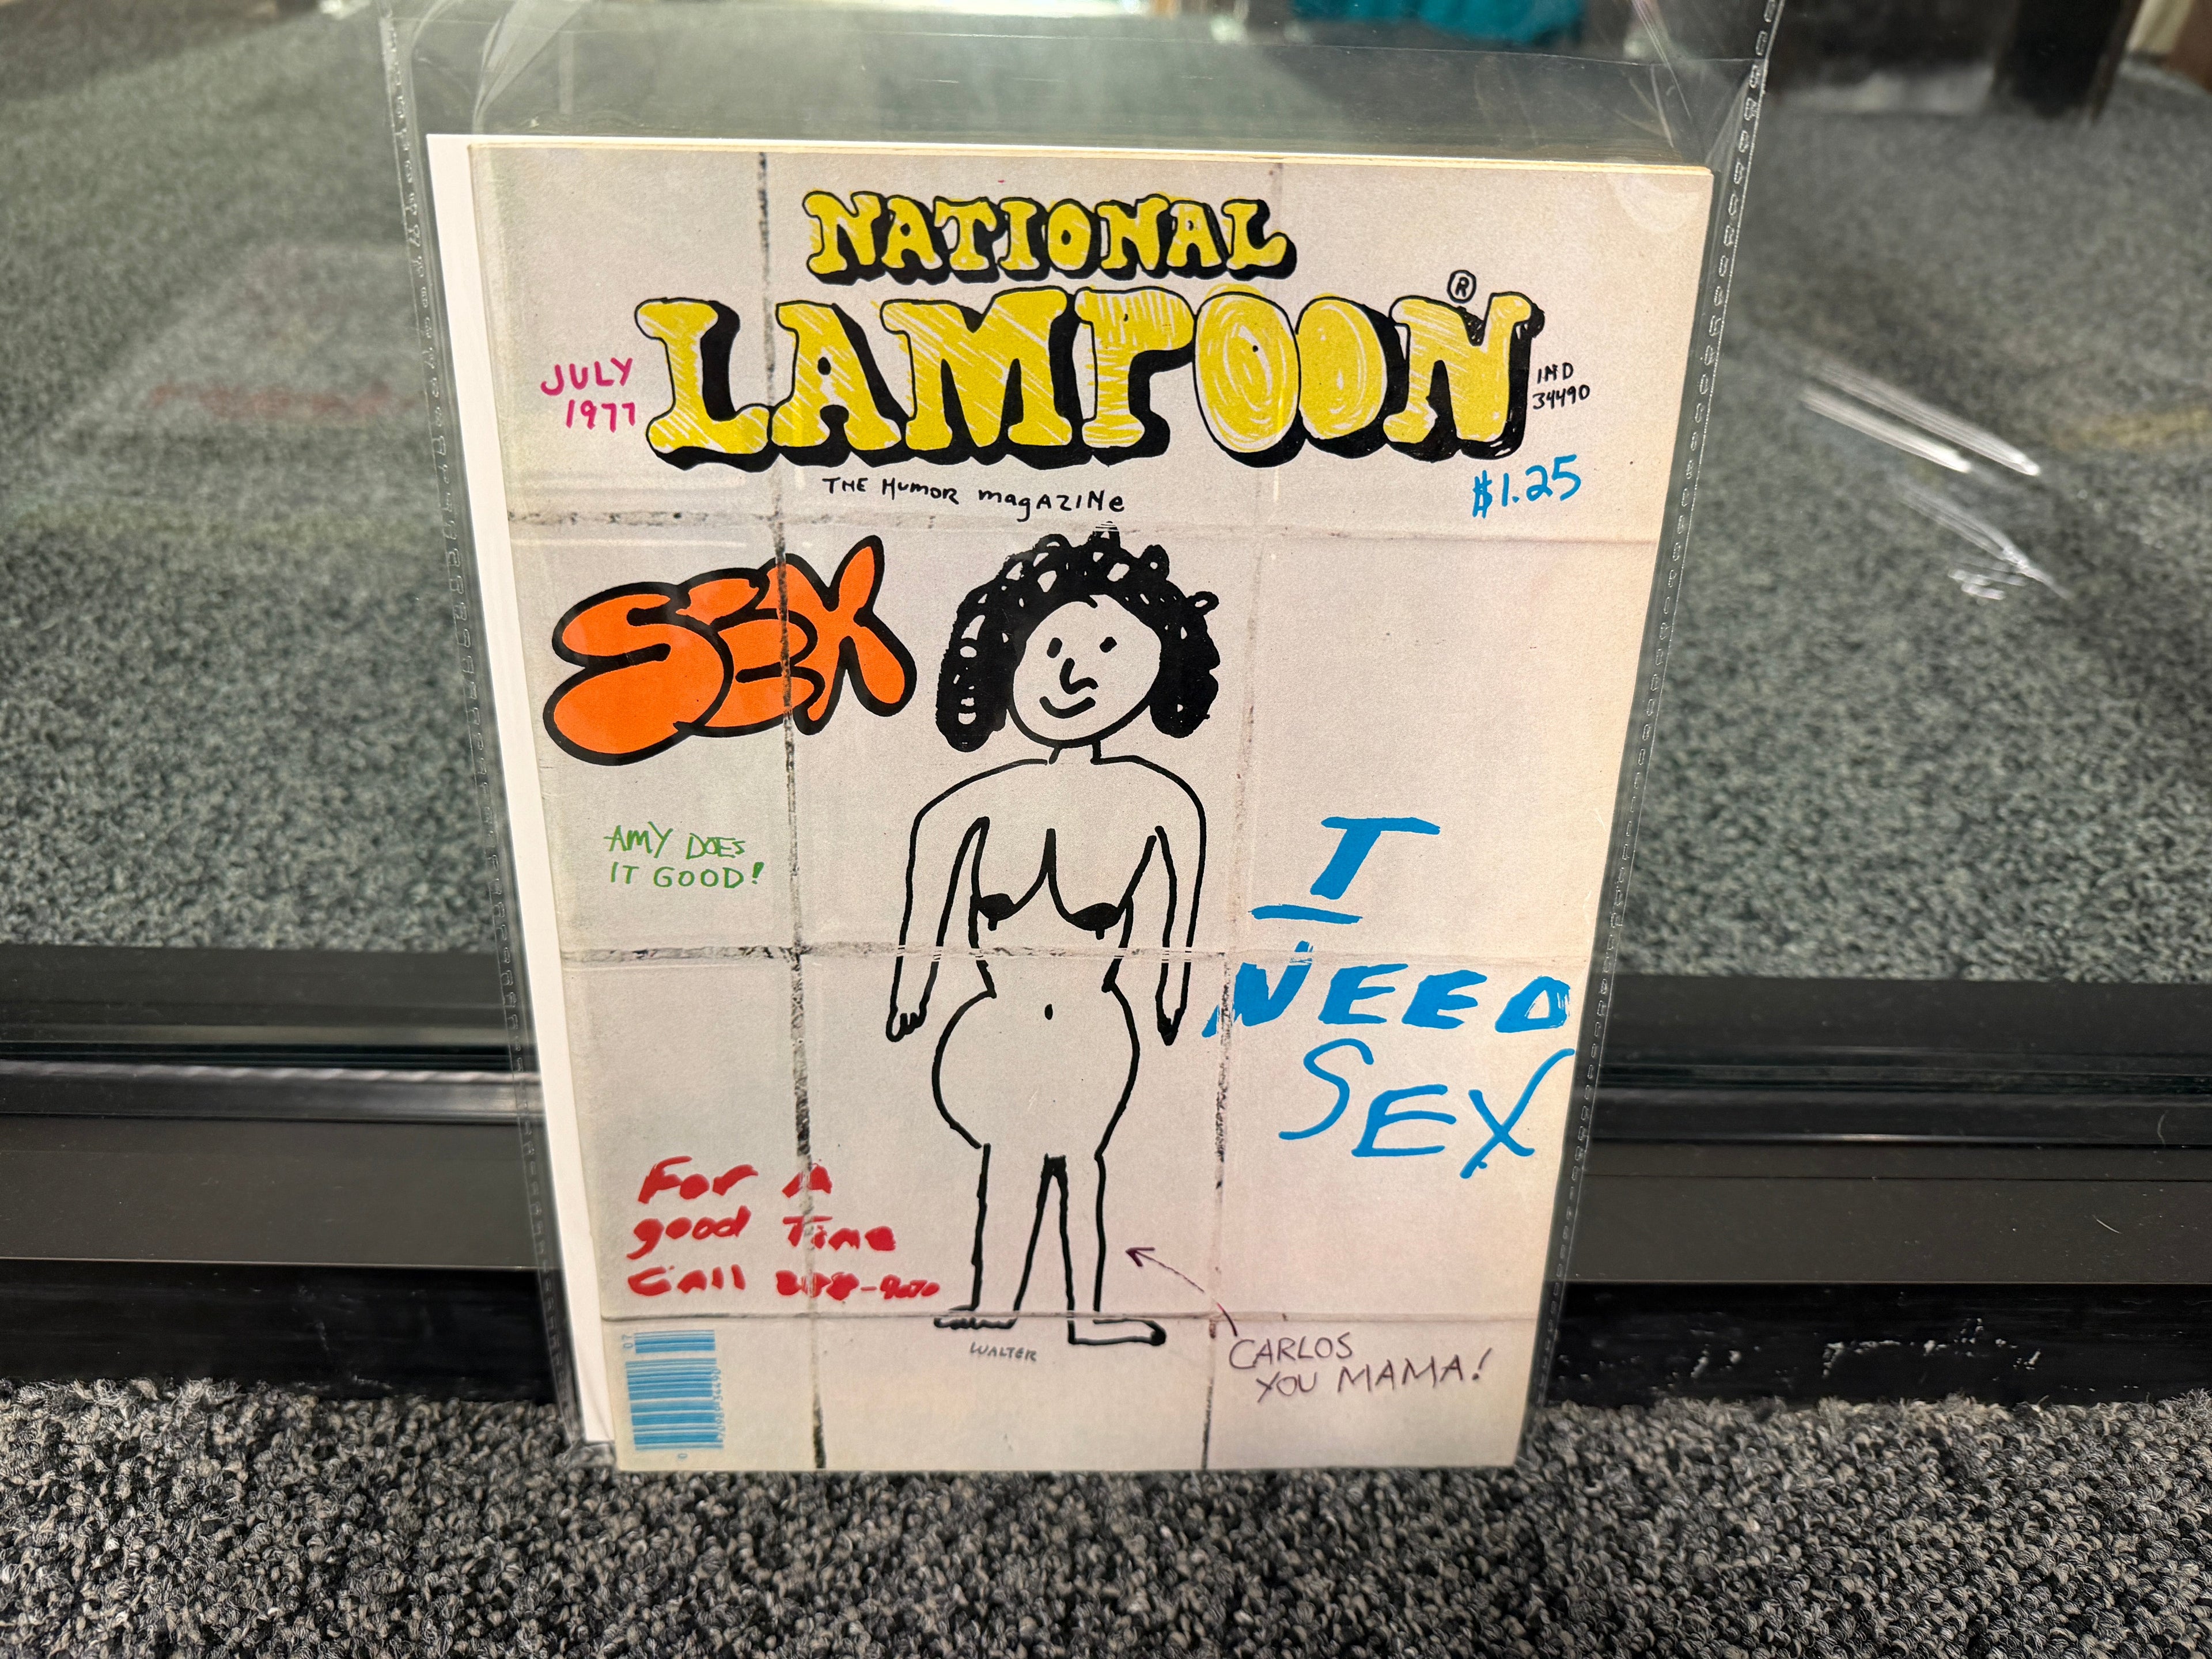 NATIONAL
LAMPOON®
JULY
1977
IND
34490
$1.25
THE HUMOR magAZINe
SEX
AMY DOES
IT GOOD!
I
NEED
SEX
For A
good Time
Call
WALTER
CARLOS
YOU MAMA!
07
0